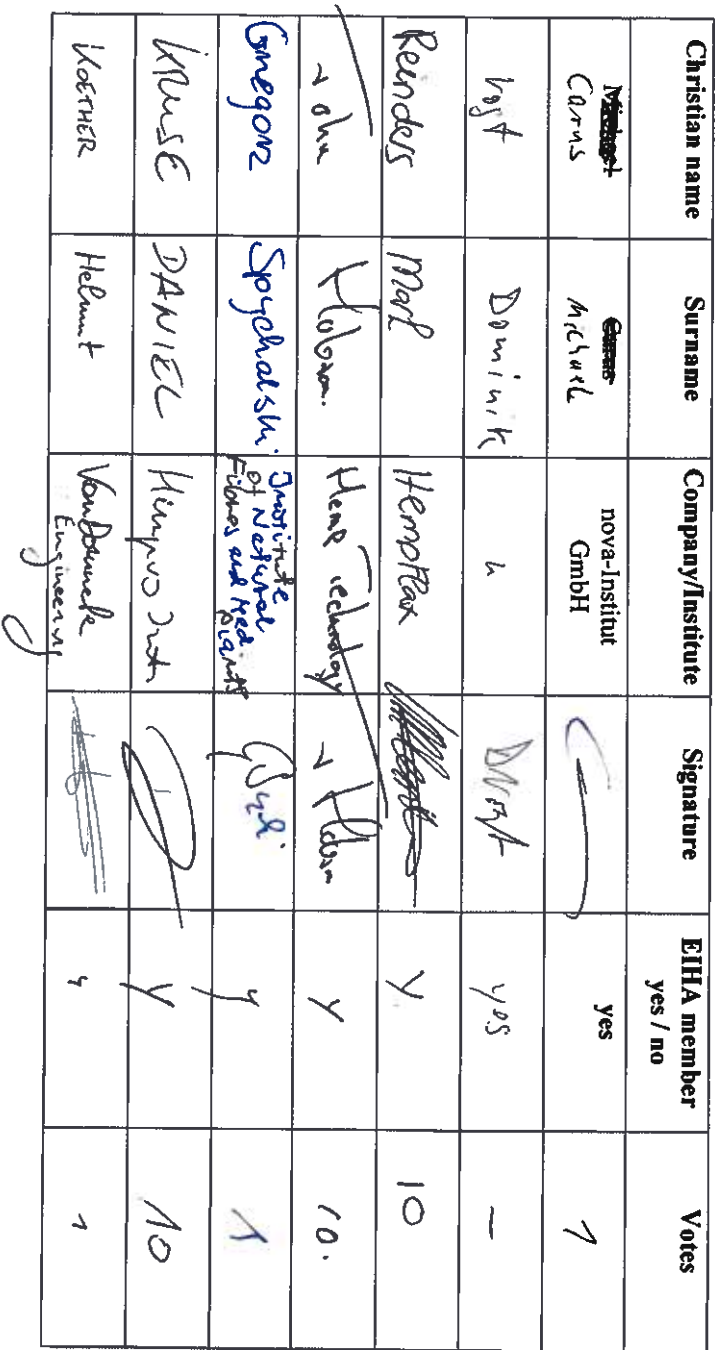 Christian name Surname Company/Institute Signature EIHA member yes / no Votes
Carus Michael nova-Institut GmbH yes 1
Vogt Dominik " DVogt yes -
Reinders Mark HempFlax y 10
John Hobson. Hemp Technology J Hobson y 10.
Gregorz Spychalski. Institute of Natural Fibres and Med. Plants y 1
KRUSE DANIEL y 10
KOETHER Helmut VanDommele Engineering y 1